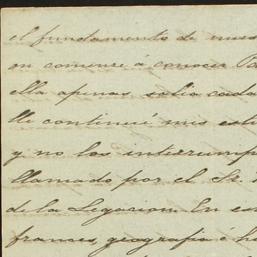 el fundamento de nues
on comencé á conocer Pa
ella apenas salia cada
lle continué mis estu
y no los interrumpí
llamado por el Sr.
de la Legacion. En es
frances, geografía é h